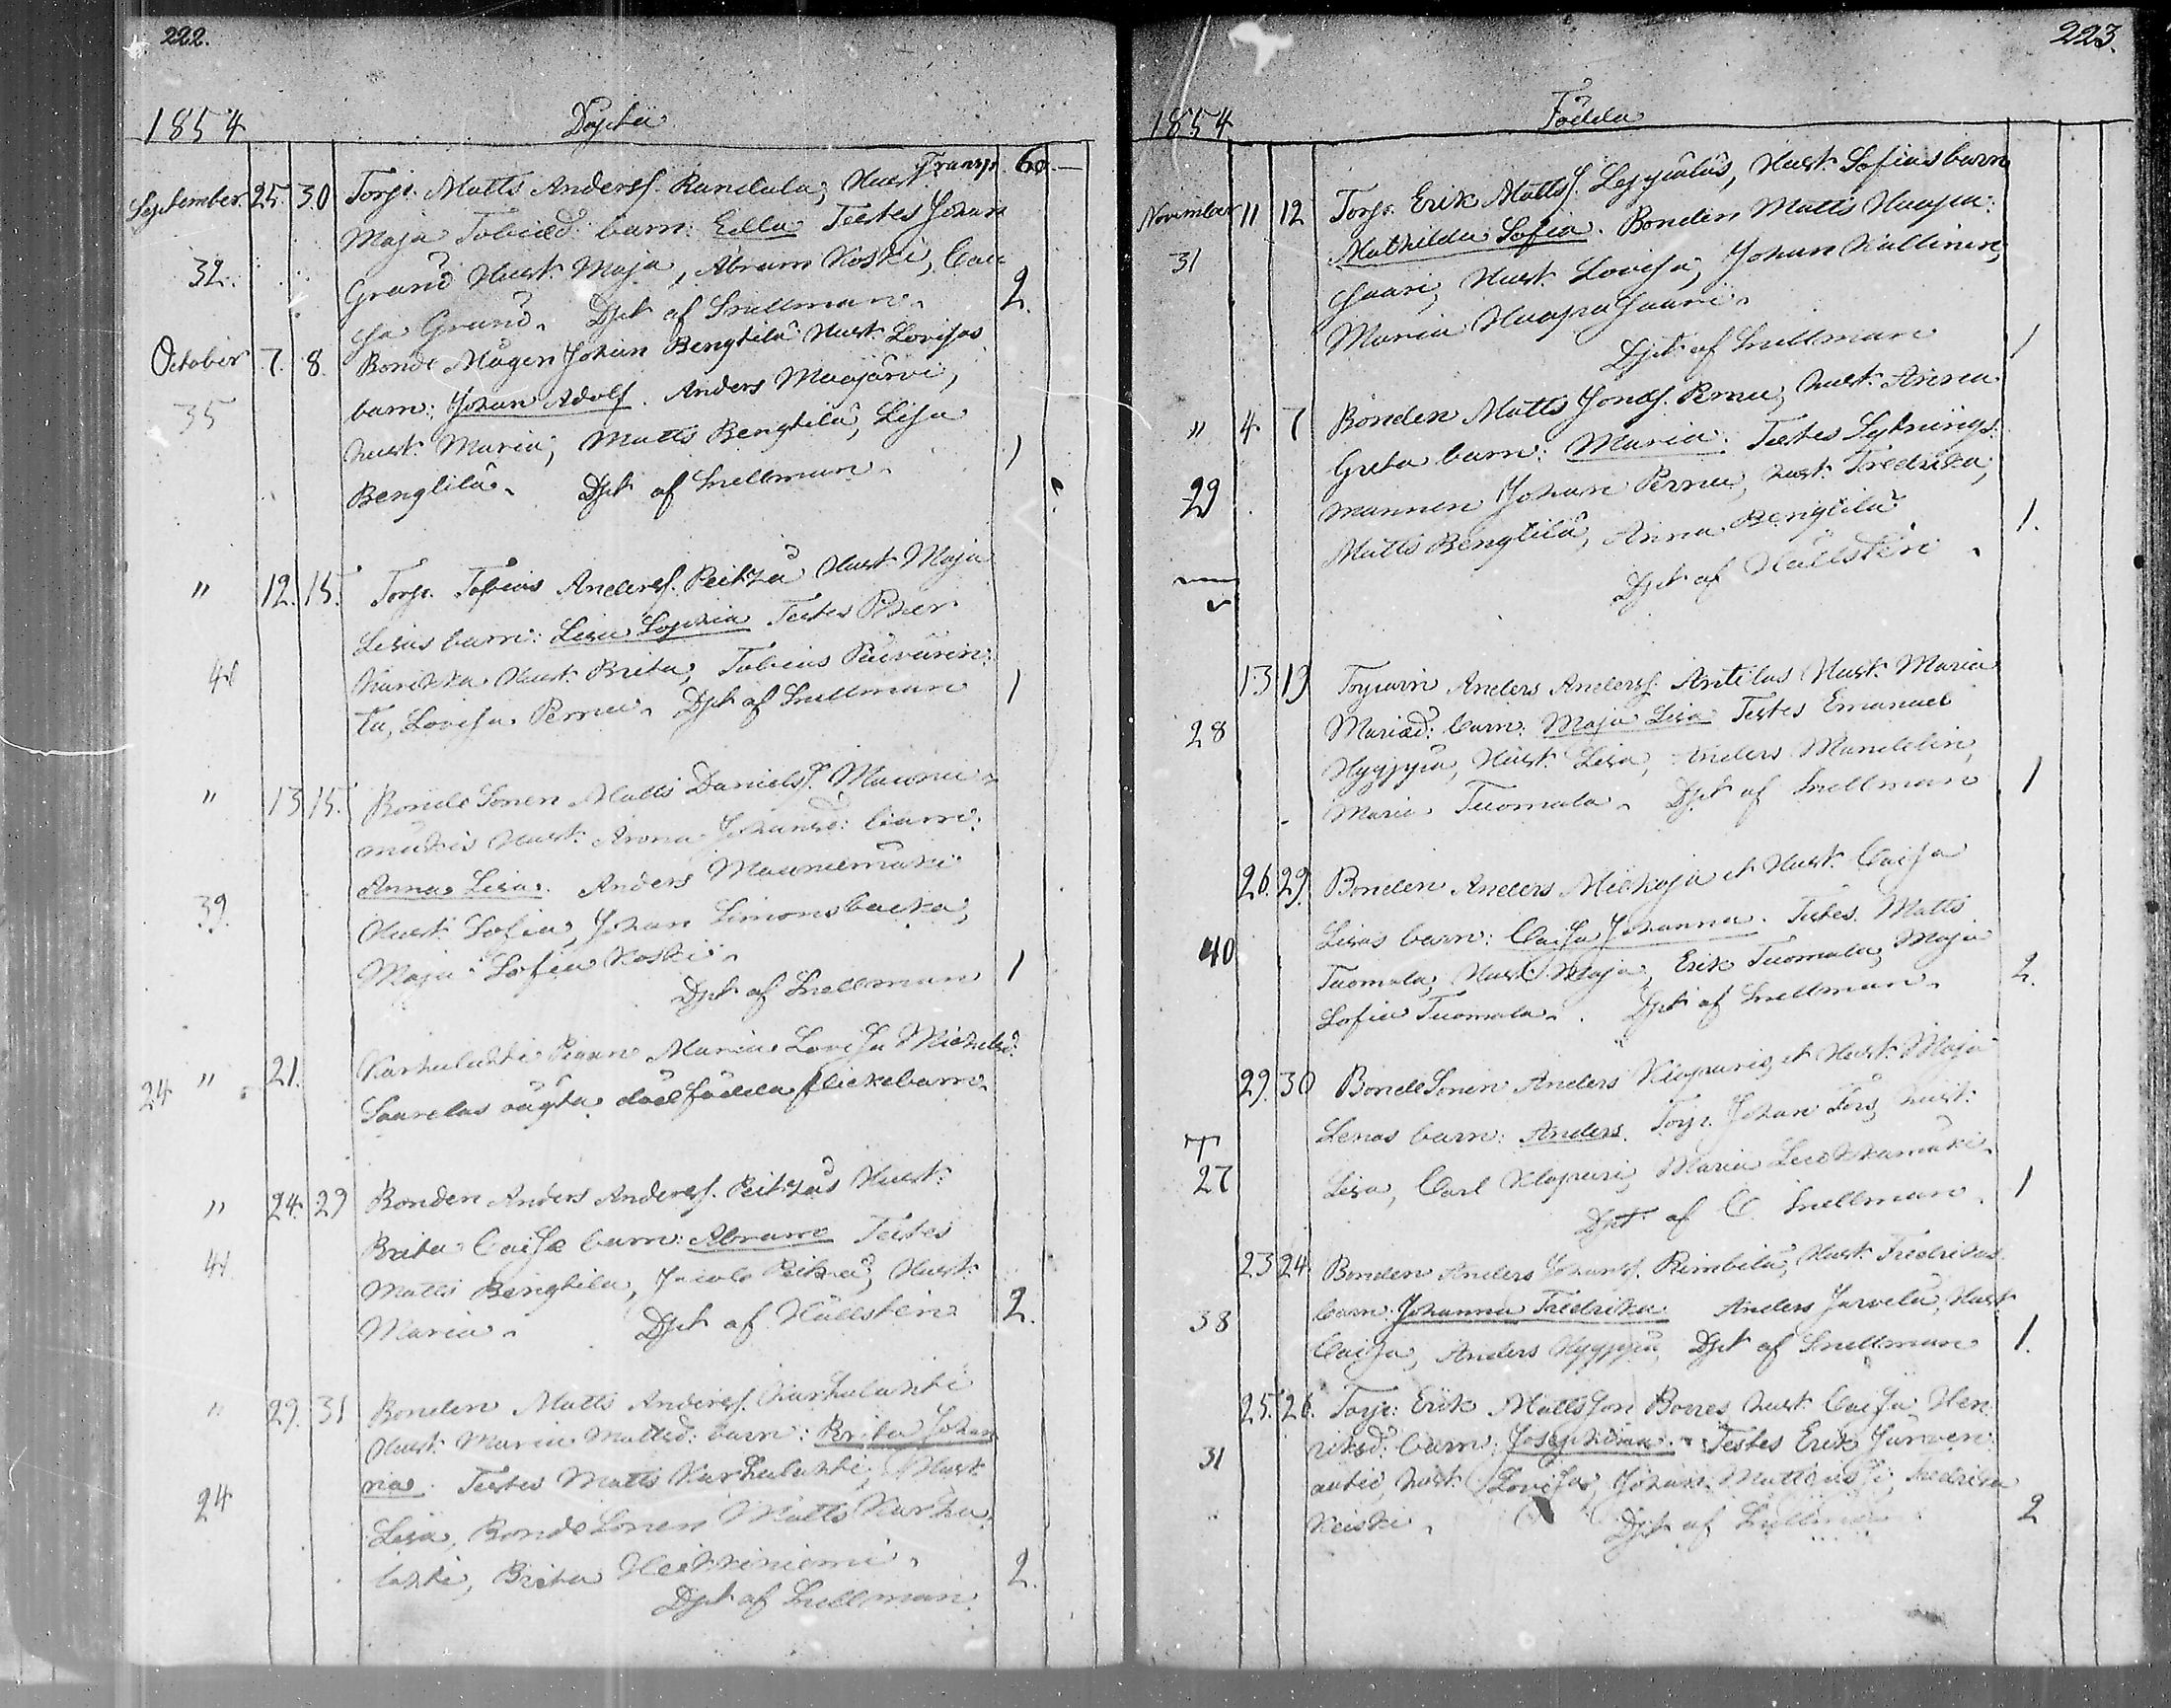 222.
1854 Döpta
Transp. 60 —
September 25. 30 Torp. Matts Andersf. Randala, Hust.
Maja Tobiæd: barn: Ella Testes Johan
32. Grand Hust. Maja, Abram Koski, Cai
sa Grand. Dpt af Snellman. 2.
October 7. 8. Bonde Mågen Johan Bengtilä Hust. Lovisas
35 barn: Johan Adolf. Anders Maajärvi,
hust. Maria, Matts Bengtilä, Lisa
Bengtilä. Dpt af Snellman. 1
" 12. 15. Torp. Tobias Andersf. Peitza Hust Maja
Lisas barn: Lisa Sophia Testes Petter
Karikka Hust. Brita, Tobias Päivärin:
ta, Lovisa Pernu. Dpt af Snellman 1
" 13 15. Bonde Sonen Matts Danielsf. Maunu
mäkis Hust. Anna Johansd: barn:
Anna Lisa. Anders Maunumäki
39. Hust. Sofia, Johan Simonsbacka,
Maja Sofia Koski.
Dpt af Snellman 1
24 " 21. Karhulahti Pigan Maria Lovisa Michelsd:
Saarelas oägta dödfödda flickebarn.
" 24. 29 Bonden Anders Andersf. Peitzas Hust.
Brita Caisæ barn: Abram Testes
Matts Bengtila, Jacob Peitza, Hust.
Maria. Dpt af Hällsten 2.
" 29. 31 Bonden Matts Andersf. Karhulahti
Hust. Maria Mattsd: barn: Brita Johan
na. Testes Matts Karhulahti, Hust.
24 Lisa, Bonde Sonen Matts Karhu
lahti, Brita Heikkiniemi.
Dpt af Snellman. 2.
223.
1854 Födda
November 11 12 Torp. Erik Mattsf. Leppälas, Hust. Sofias barn
31 Mathilda Sofia. Bonden Matts Haapa:
saari, Hust. Lovisa, Johan Kallinen,
Maria Haapasaari.
Dpt af Snellman 1
" 4. 7 Bonden Matts Jonæf. Pernu, hust. Anna
Greta barn: Maria. Testes Sytnings:
29 mannen Johan Pernu, hust. Fredrika,
Matts Bengtilä, Anna Bengtilä 1.
Dpt af Hällsten.
13 19 Torparn Anders Andersf. Antilas Hust. Maria
28 Mariæd: barn: Maja Lisa Testes Emanuel
Hyyppä, Hust. Lisa, Anders Mandelin,
Maria Tuomala. Dpt af Snellman 1
26. 29. Bonden Anders Mickoja et Hust. Caisa
Lisas barn: Caisa Johanna. Testes Matts
40 Tuomala, Hust. Maja, Erik Tuomala, Maja
Sofia Tuomala. Dpt af Snellman. 2.
29. 30 Bonde Sonen Anders Klapuris, et Hust. Maja
Lenas barn: Anders. Torp. Johan Fors, hust.
27 Lisa, Carl Klapuri, Maria Luokkamäki.
Dpt af C. Snellman. 1
23 24. Bonden Anders Johansf. Rimbilä, Hust. Fredrikas
38 barn: Johanna Fredrika Anders Jarvela, Hust.
Caisa, Anders Hyyppä, Dpt af Snellman 1.
25. 26. Torp: Erik Mattsson Bores hust. Caisa Hen
riksd: barn: Josephina. Testes Erik Jurven
31 autio, hust. Lovisa, Johan Fredrika
Keiski. Dpt af Snellman 2